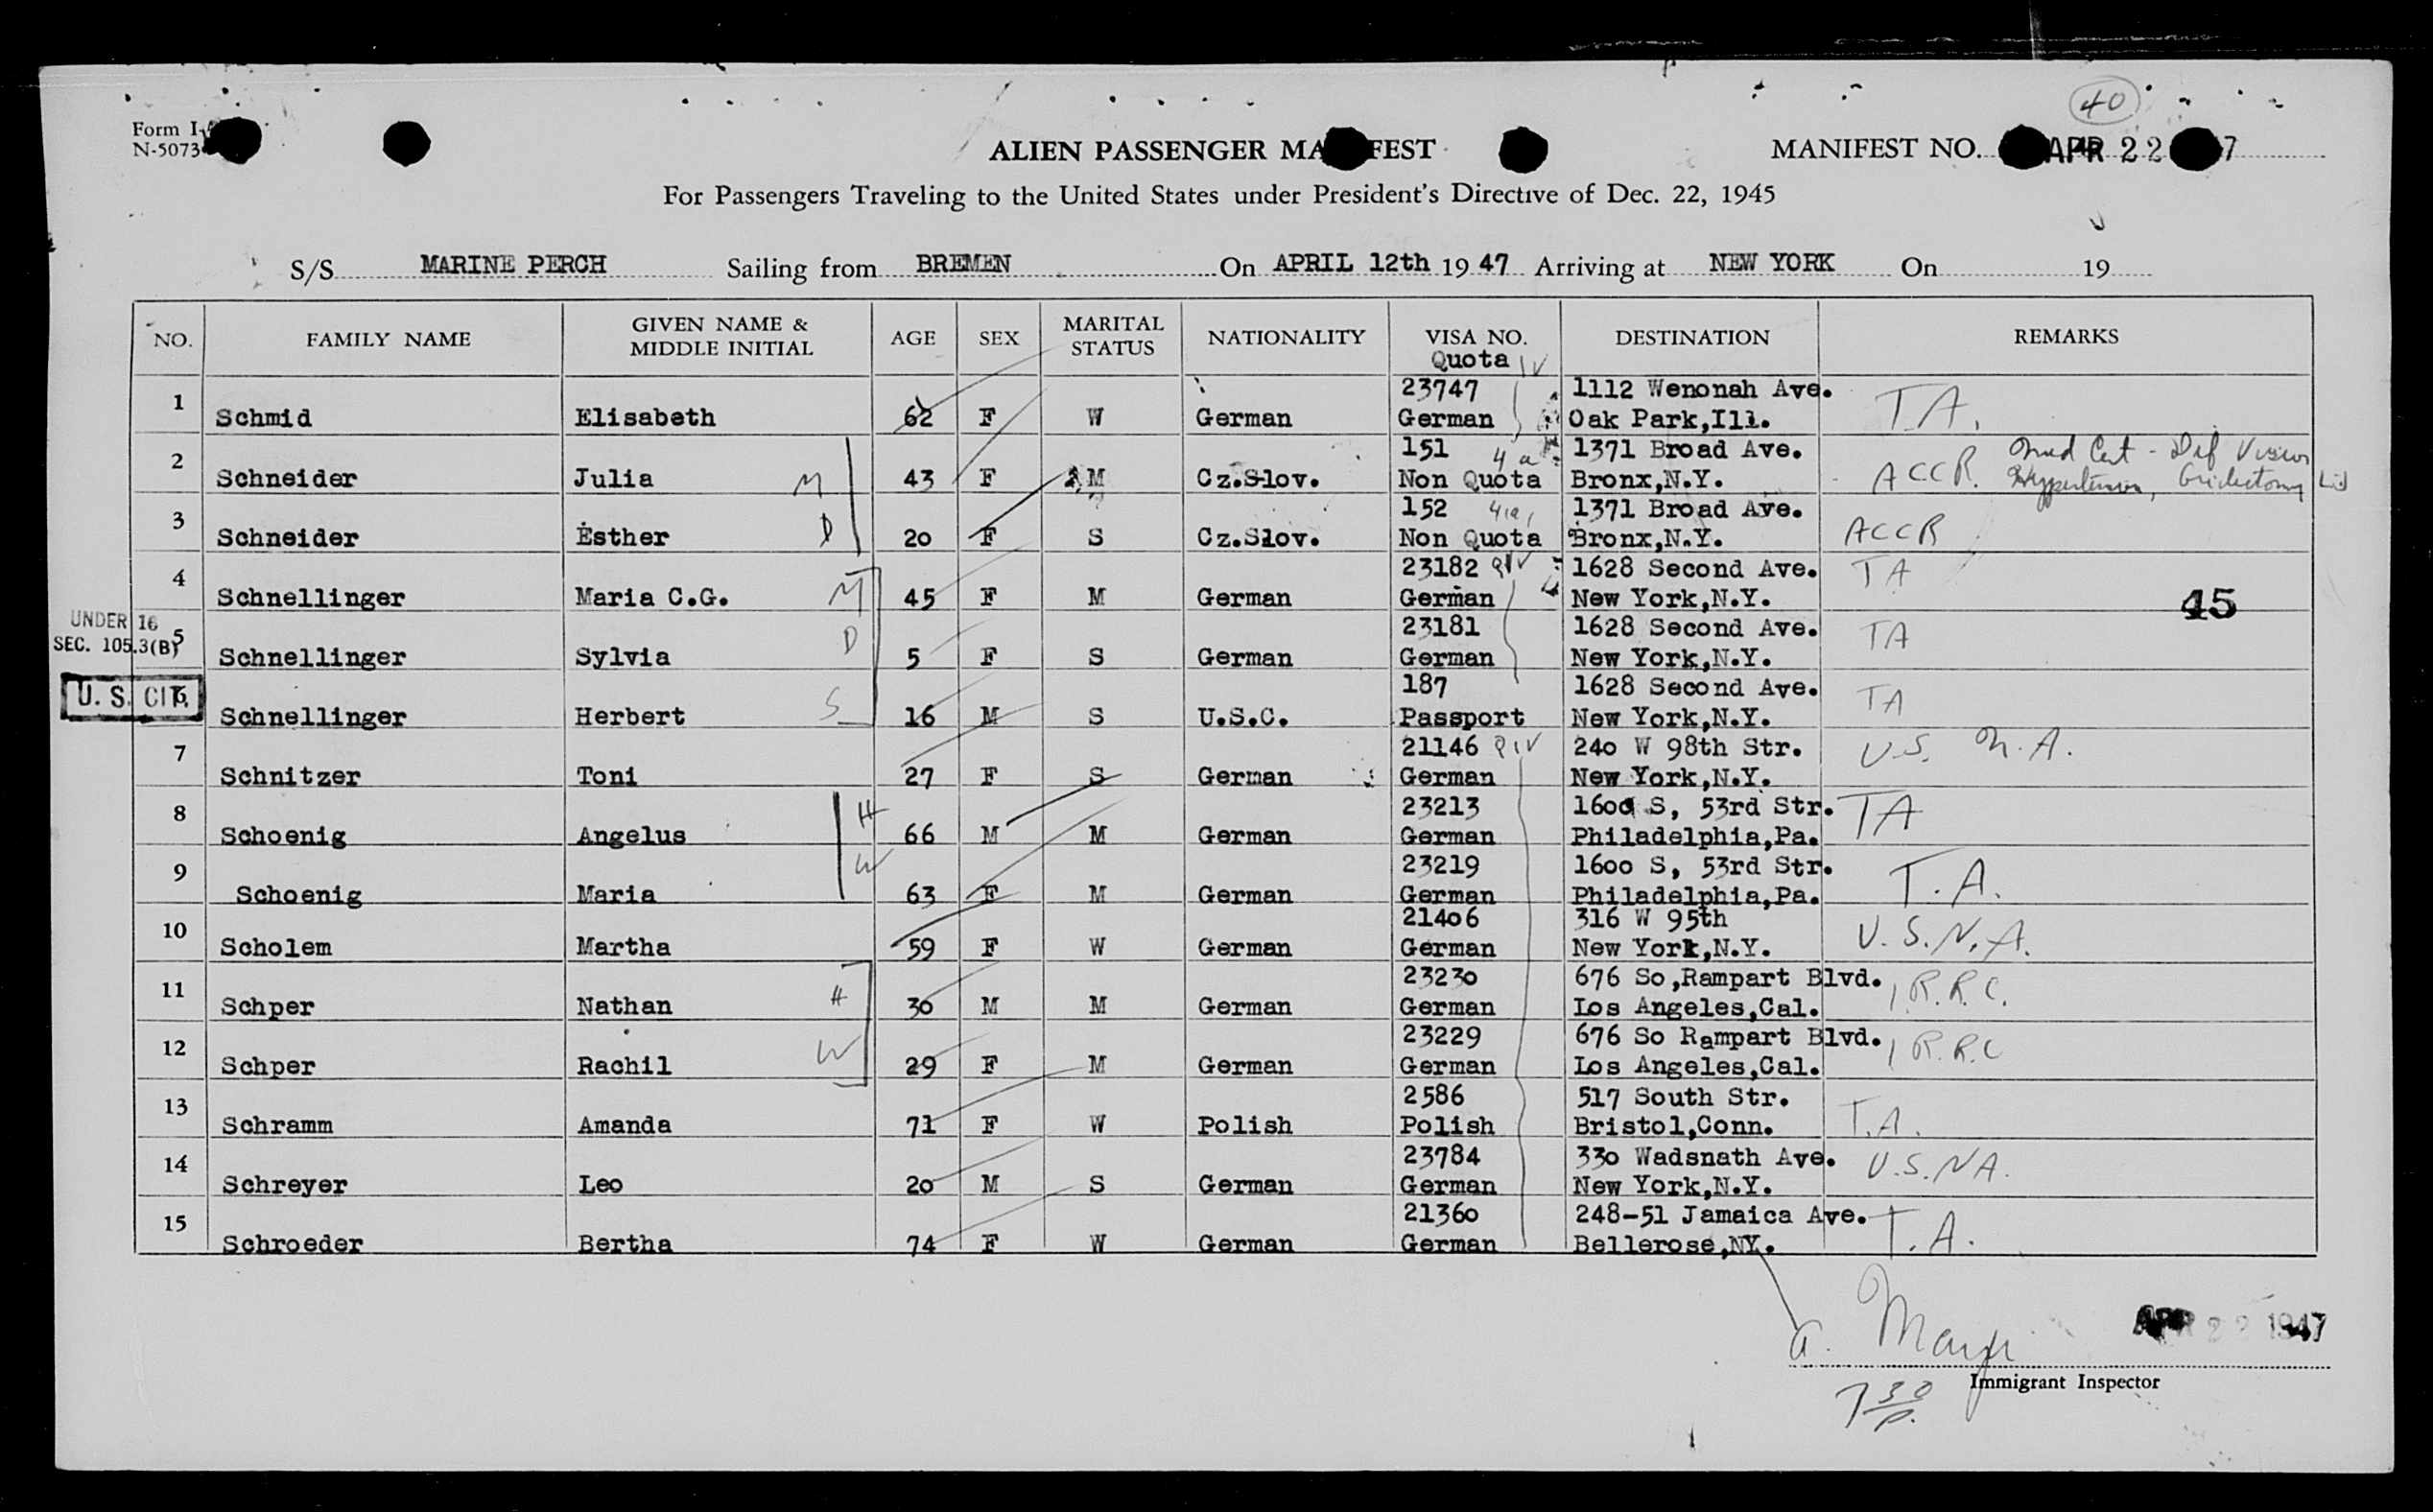 40
Form I-
N-5073
ALIEN PASSENGER MA FEST
MANIFEST NO. APR 22 7
For Passengers Traveling to the United States under President's Directive of Dec. 22, 1945
S/S MARINE PERCH Sailing from BREMEN On APRIL 12th 19 47 Arriving at NEW YORK On 19
NO. FAMILY NAME GIVEN NAME & MIDDLE INITIAL AGE SEX MARITAL STATUS NATIONALITY VISA NO. DESTINATION REMARKS
Quota IV
23747 1112 Wenonah Ave.
1 Schmid Elisabeth 62 F W German German Oak Park,Ill. T.A.
151 4a 1371 Broad Ave. Med Cert - Def Vision
2 Schneider Julia M 43 F M Cz.Slov. Non Quota Bronx,N.Y. ACCR. Hypertension, Lid
152 4a 1371 Broad Ave.
3 Schneider Esther D 20 F S Cz.Slov. Non Quota Bronx,N.Y. ACCR
23182 QIV 1628 Second Ave.
4 Schnellinger Maria C.G. M 45 F M German German New York,N.Y. TA
45
UNDER 16
SEC. 105.3(B)
23181 1628 Second Ave.
5 Schnellinger Sylvia D 5 F S German German New York,N.Y. TA
U. S. CIT.
187 1628 Second Ave.
6 Schnellinger Herbert S 16 M S U.S.C. Passport New York,N.Y. TA
21146 QIV 240 W 98th Str.
7 Schnitzer Toni 27 F S German German New York,N.Y. U.S. N.A.
23213 1600 S, 53rd Str.
8 Schoenig Angelus H 66 M M German German Philadelphia,Pa. TA
23219 1600 S, 53rd Str.
9 Schoenig Maria W 63 F M German German Philadelphia,Pa. T.A.
21406 316 W 95th
10 Scholem Martha 59 F W German German New York,N.Y. U.S.N.A.
23230 676 So,Rampart Blvd.
11 Schper Nathan H 30 M M German German Los Angeles,Cal. I.R.R.C.
23229 676 So Rampart Blvd.
12 Schper Rachil W 29 F M German German Los Angeles,Cal. I R.R.C
2586 517 South Str.
13 Schramm Amanda 71 F W Polish Polish Bristol,Conn. T.A.
23784 330 Wadsnath Ave.
14 Schreyer Leo 20 M S German German New York,N.Y. U.S.NA.
21360 248-51 Jamaica Ave.
15 Schroeder Bertha 74 F W German German Bellerose,NY. T.A.
APR 22 1947
Immigrant Inspector
7 30 P.